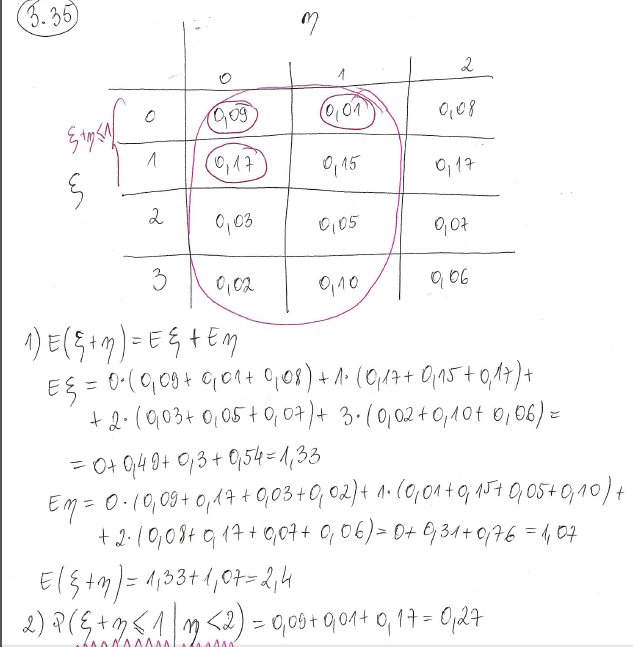 3.35
η
0 1 2
0 0,09 0,01 0,08
ξ+η≤1
1 0,17 0,15 0,17
ξ
2 0,03 0,05 0,07
3 0,02 0,10 0,06
1) E(ξ+η) = Eξ + Eη
Eξ = 0·(0,09+0,01+0,08)+1·(0,17+0,15+0,17)+
+2·(0,03+0,05+0,07)+3·(0,02+0,10+0,06)=
=0+0,49+0,3+0,54=1,33
Eη = 0·(0,09+0,17+0,03+0,02)+1·(0,01+0,15+0,05+0,10)+
+2·(0,08+0,17+0,07+0,06)=0+0,31+0,76=1,07
E(ξ+η)=1,33+1,07=2,4
2) P(ξ+η≤1|η<2)=0,09+0,01+0,17=0,27